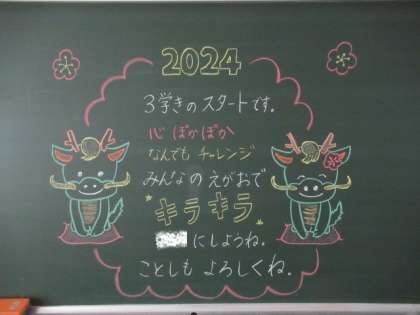 2024
3学きのスタートです。
心 ぽかぽか
なんでも チャレンジ
みんなの えがおで
キラキラ
にしようね。
ことしも よろしくね。